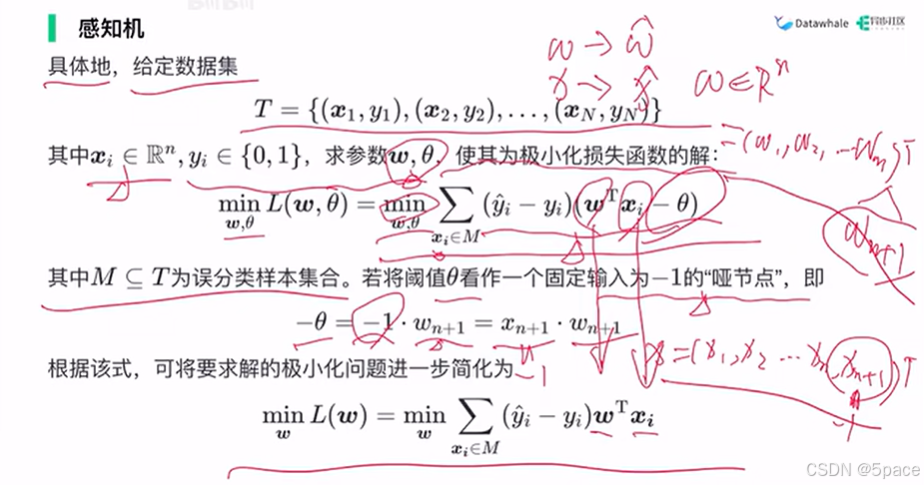 感知机
Datawhale
具体地，给定数据集
T = {(x₁, y₁), (x₂, y₂), . . . , (x_N, y_N)}
其中x_i ∈ ℝⁿ, y_i ∈ {0, 1}，求参数w, θ，使其为极小化损失函数的解：
min_{w,θ} L(w, θ) = min_{w,θ} ∑_{x_i∈M} (ŷ_i − y_i)(wᵀx_i − θ)
其中M ⊆ T为误分类样本集合。若将阈值θ看作一个固定输入为−1的“哑节点”，即
−θ = −1 · w_{n+1} = x_{n+1} · w_{n+1}
根据该式，可将要求解的极小化问题进一步简化为
min_w L(w) = min_w ∑_{x_i∈M} (ŷ_i − y_i)wᵀx_i
w → ŵ
x → x̂
w ∈ Rⁿ
= (w₁, w₂, ... w_n)ᵀ
w_{n+1}
x = (x₁, x₂ ... x_n, x_{n+1})ᵀ
-1
CSDN @5pace